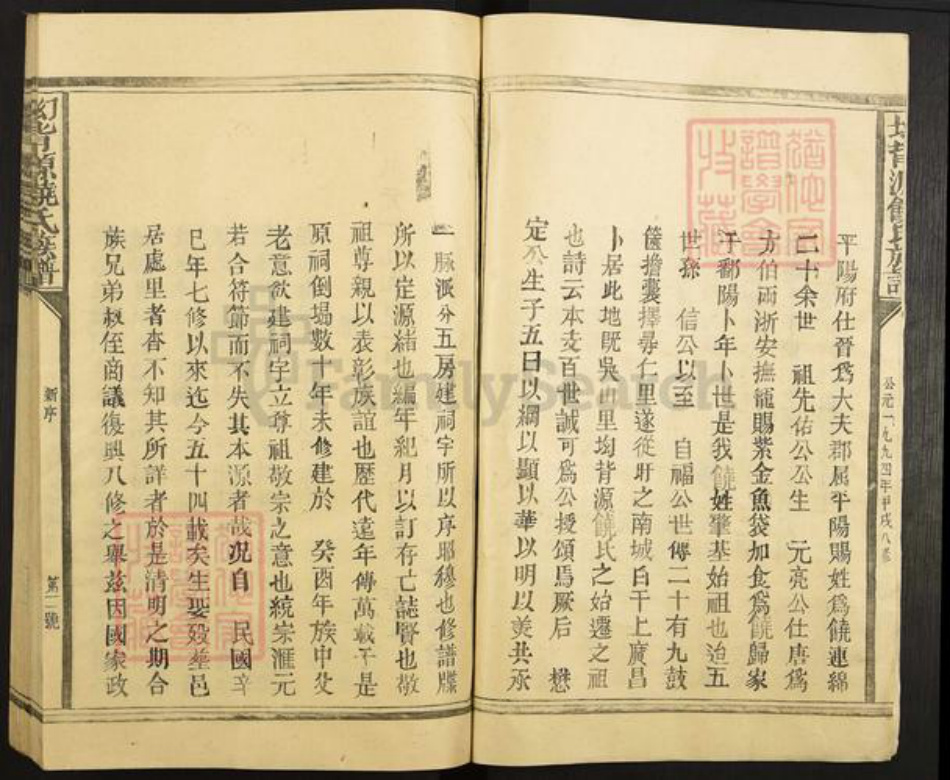 公元一九九四年甲戌八修
平陽府仕晉爲大夫郡屈平陽賜姓爲饒連綿
二十余世　祖先佑公公生　元亮公仕唐爲
方伯両浙安撫寵賜紫金魚袋加食爲饒歸家
于鄱陽卜年卜世是我饒姓肇基始祖也迨五
世孫　信公以至　自福公世傳二十有九鼓
篋擔囊擇尋仁里遂從盱之南城白干上廣昌
卜居此地既吳山里坳背源饒氏之始遷之祖
也詩云本支百世誠可爲公授頌馬厥后　懋
定公生子五曰以綱以顯以華以明以美共承
一脈派分五房建祠宇所以序耶穆也修譜牒
所以定源緒也編年紀月以訂存亡誌賢也敬
祖尊親以表彰族誼也歷代遠年傳萬載于是
原祠倒塌數十年未修建於　癸酉年族中父
老意欲建祠宇立尊祖敬宗之意也統宗滙元
若合符節而不失其本源者哉况自　民國辛
巳年七修以來迄今五十四載矣生娶殁塟邑
居處里者杳不知其所詳者於是清明之期合
族兄弟叔侄商議復興八修之舉茲因國家政
幻背源饒氏族譜
新序
第二號
FamilySearch